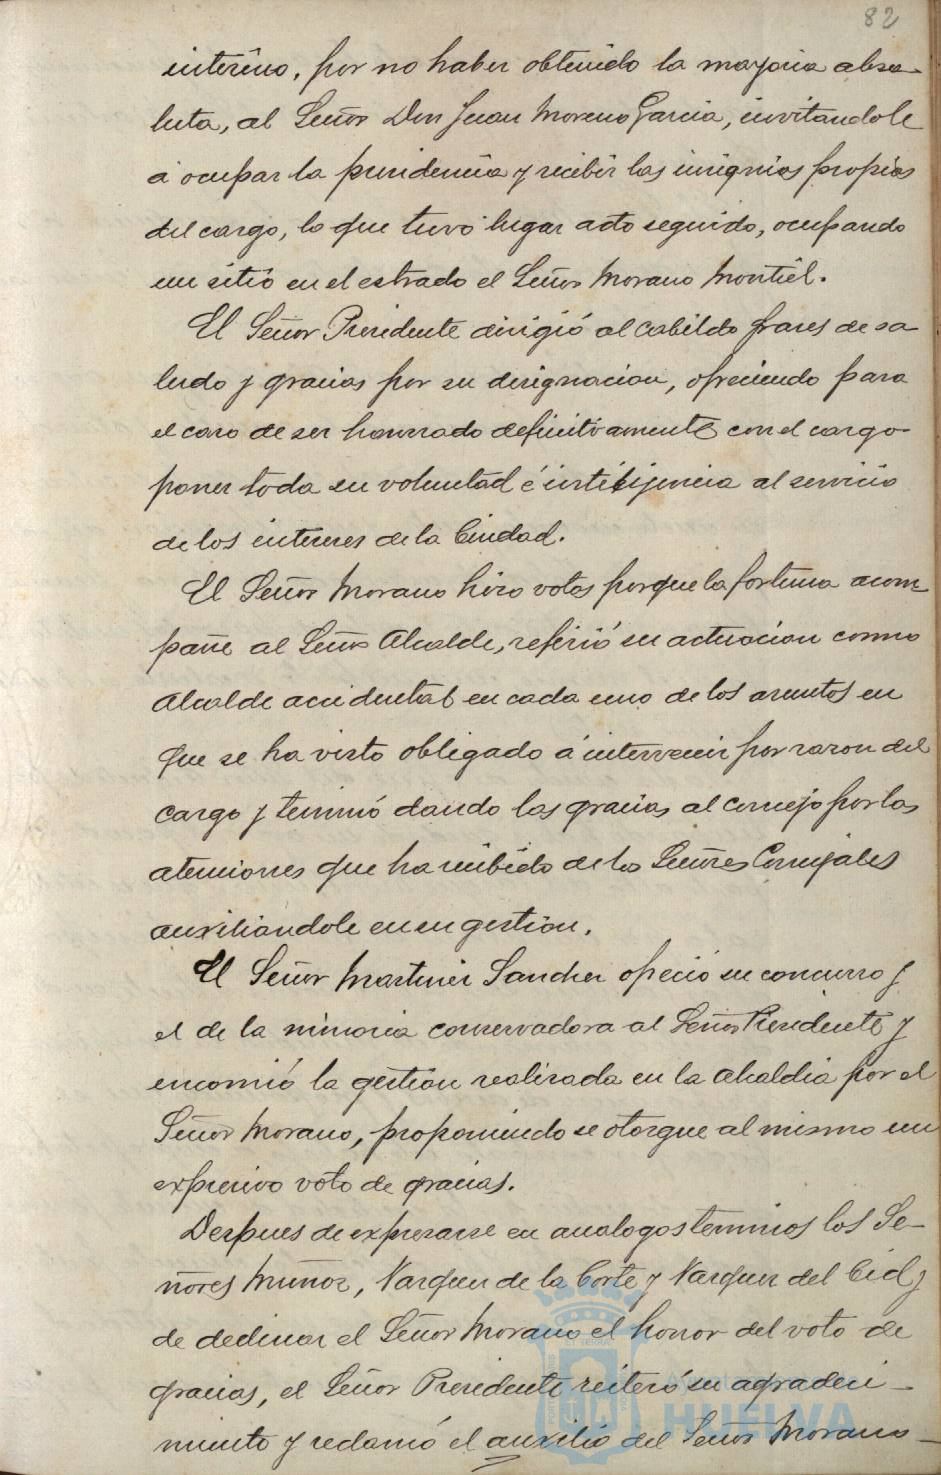 82
interino, por no haber obtenido la mayoria abso-
luta, al Señor Don Juan Moreno Garcia, invitandole
á ocupar la presidencia y recibir las insignias propias
del cargo, lo que tuvo lugar acto seguido, ocupando
un sitio en el estrado el Señor Morano Montiel.
El Señor Presidente dirigió al Cabildo frases de sa
ludo y gracias por su designacion, ofreciendo para
el caso de ser honrrado definitivamente con el cargo
poner toda su voluntad é inteligencia al servicio
de los intereses de la Ciudad.
El Señor Morano hizo votos porque la fortuna acom-
pañe al Señor Alcalde, refirió su actuacion como
Alcalde accidental en cada uno de los asuntos en
que se ha visto obligado á intervenir por razon del
cargo y terminó dando las gracias al Concejo por las
atenciones que ha recibido de los Señores Concejales
auxiliandole en su gestion.
El Señor Martinez Sanchez ofreció su concurso y
el de la minoria conservadora al Señor Presidente y
encomió la gestion realizada en la Alcaldia por el
Señor Morano, proponiendo se otorgue al mismo un
expresivo voto de gracias.
Despues de expresarse en analogos terminos los Se-
ñores Muñoz, Vazquez de la Corte y Vazquez del Cid y
de declinar el Señor Morano el honor del voto de
gracias, el Señor Presidente reiteró su agradeci-
miento y reclamó el auxilio del Señor Morano-
HUELVA